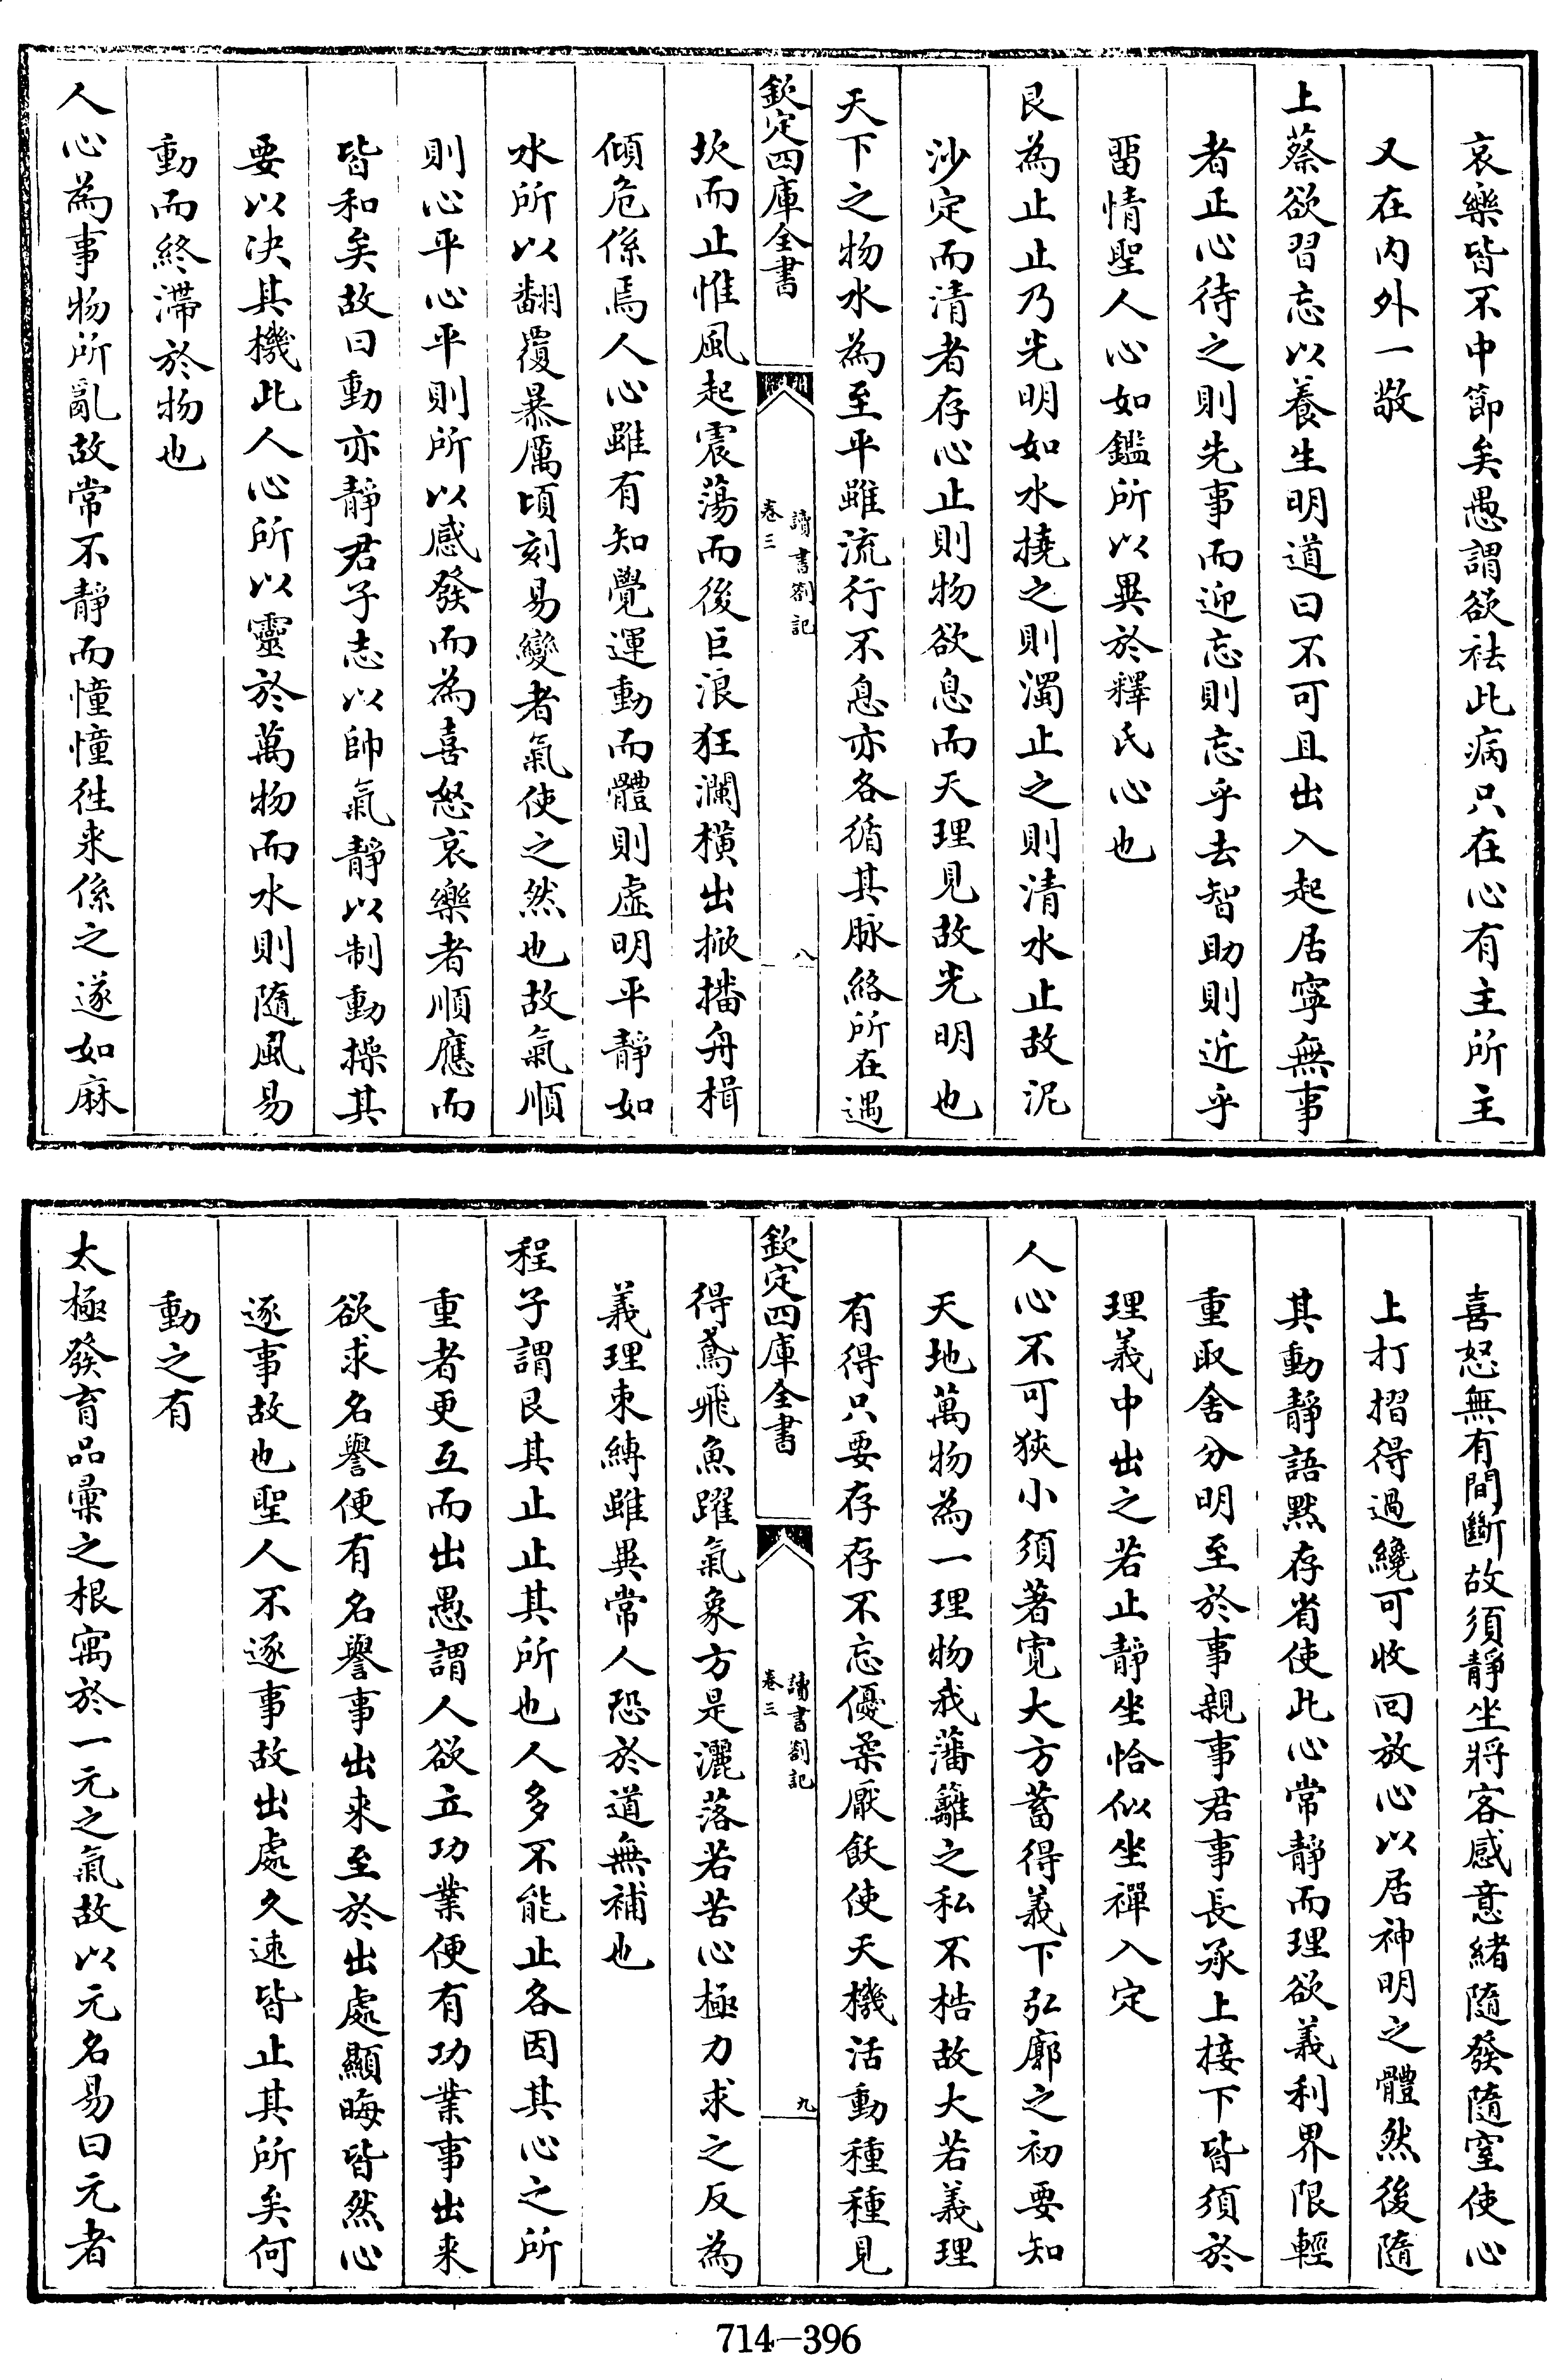 哀樂皆不中節矣愚謂欲祛此病只在心有主所主
又在内外一敬
上蔡欲習忘以養生明道曰不可且出入起居寧無事
者正心待之則先事而迎忘則忘乎去智助則近乎
畱情聖人心如鑑所以異於釋氏心也
艮為止止乃光明如水撓之則濁止之則清水止故泥
沙定而清者存心止則物欲息而天理見故光明也
天下之物水為至平雖流行不息亦各循其脉絡所在遇
欽定四庫全書
讀書劄記
卷三
八
坎而止惟風起震蕩而後巨浪狂瀾橫出掀播舟楫
傾危係焉人心雖有知覺運動而體則虛明平靜如
水所以翻覆暴厲頃刻易變者氣使之然也故氣順
則心平心平則所以感發而為喜怒哀樂者順應而
皆和矣故曰動亦靜君子志以帥氣靜以制動操其
要以决其機此人心所以靈於萬物而水則隨風易
動而終滯於物也
人心為事物所亂故常不靜而憧憧徃来係之遂如麻
喜怒無有間斷故須靜坐將客感意緒隨發隨窒使心
上打摺得過纔可收回放心以居神明之體然後隨
其動靜語黙存省使此心常靜而理欲義利界限輕
重取舍分明至於事親事君事長承上接下皆須於
理義中出之若止靜坐恰似坐禪入定
人心不可狹小須著寛大方蓄得義下弘廓之初要知
天地萬物為一理物我藩籬之私不梏故大若義理
有得只要存存不忘優柔厭飫使天機活動種種見
欽定四庫全書
讀書劄記
卷三
九
得鳶飛魚躍氣象方是灑落若苦心極力求之反為
義理束縛雖異常人恐於道無補也
程子謂艮其止止其所也人多不能止各因其心之所
重者更互而出愚謂人欲立功業便有功業事出来
欲求名譽便有名譽事出来至於出處顯晦皆然心
逐事故也聖人不逐事故出處久速皆止其所矣何
動之有
太極發育品彙之根寓於一元之氣故以元名易曰元者
714-396